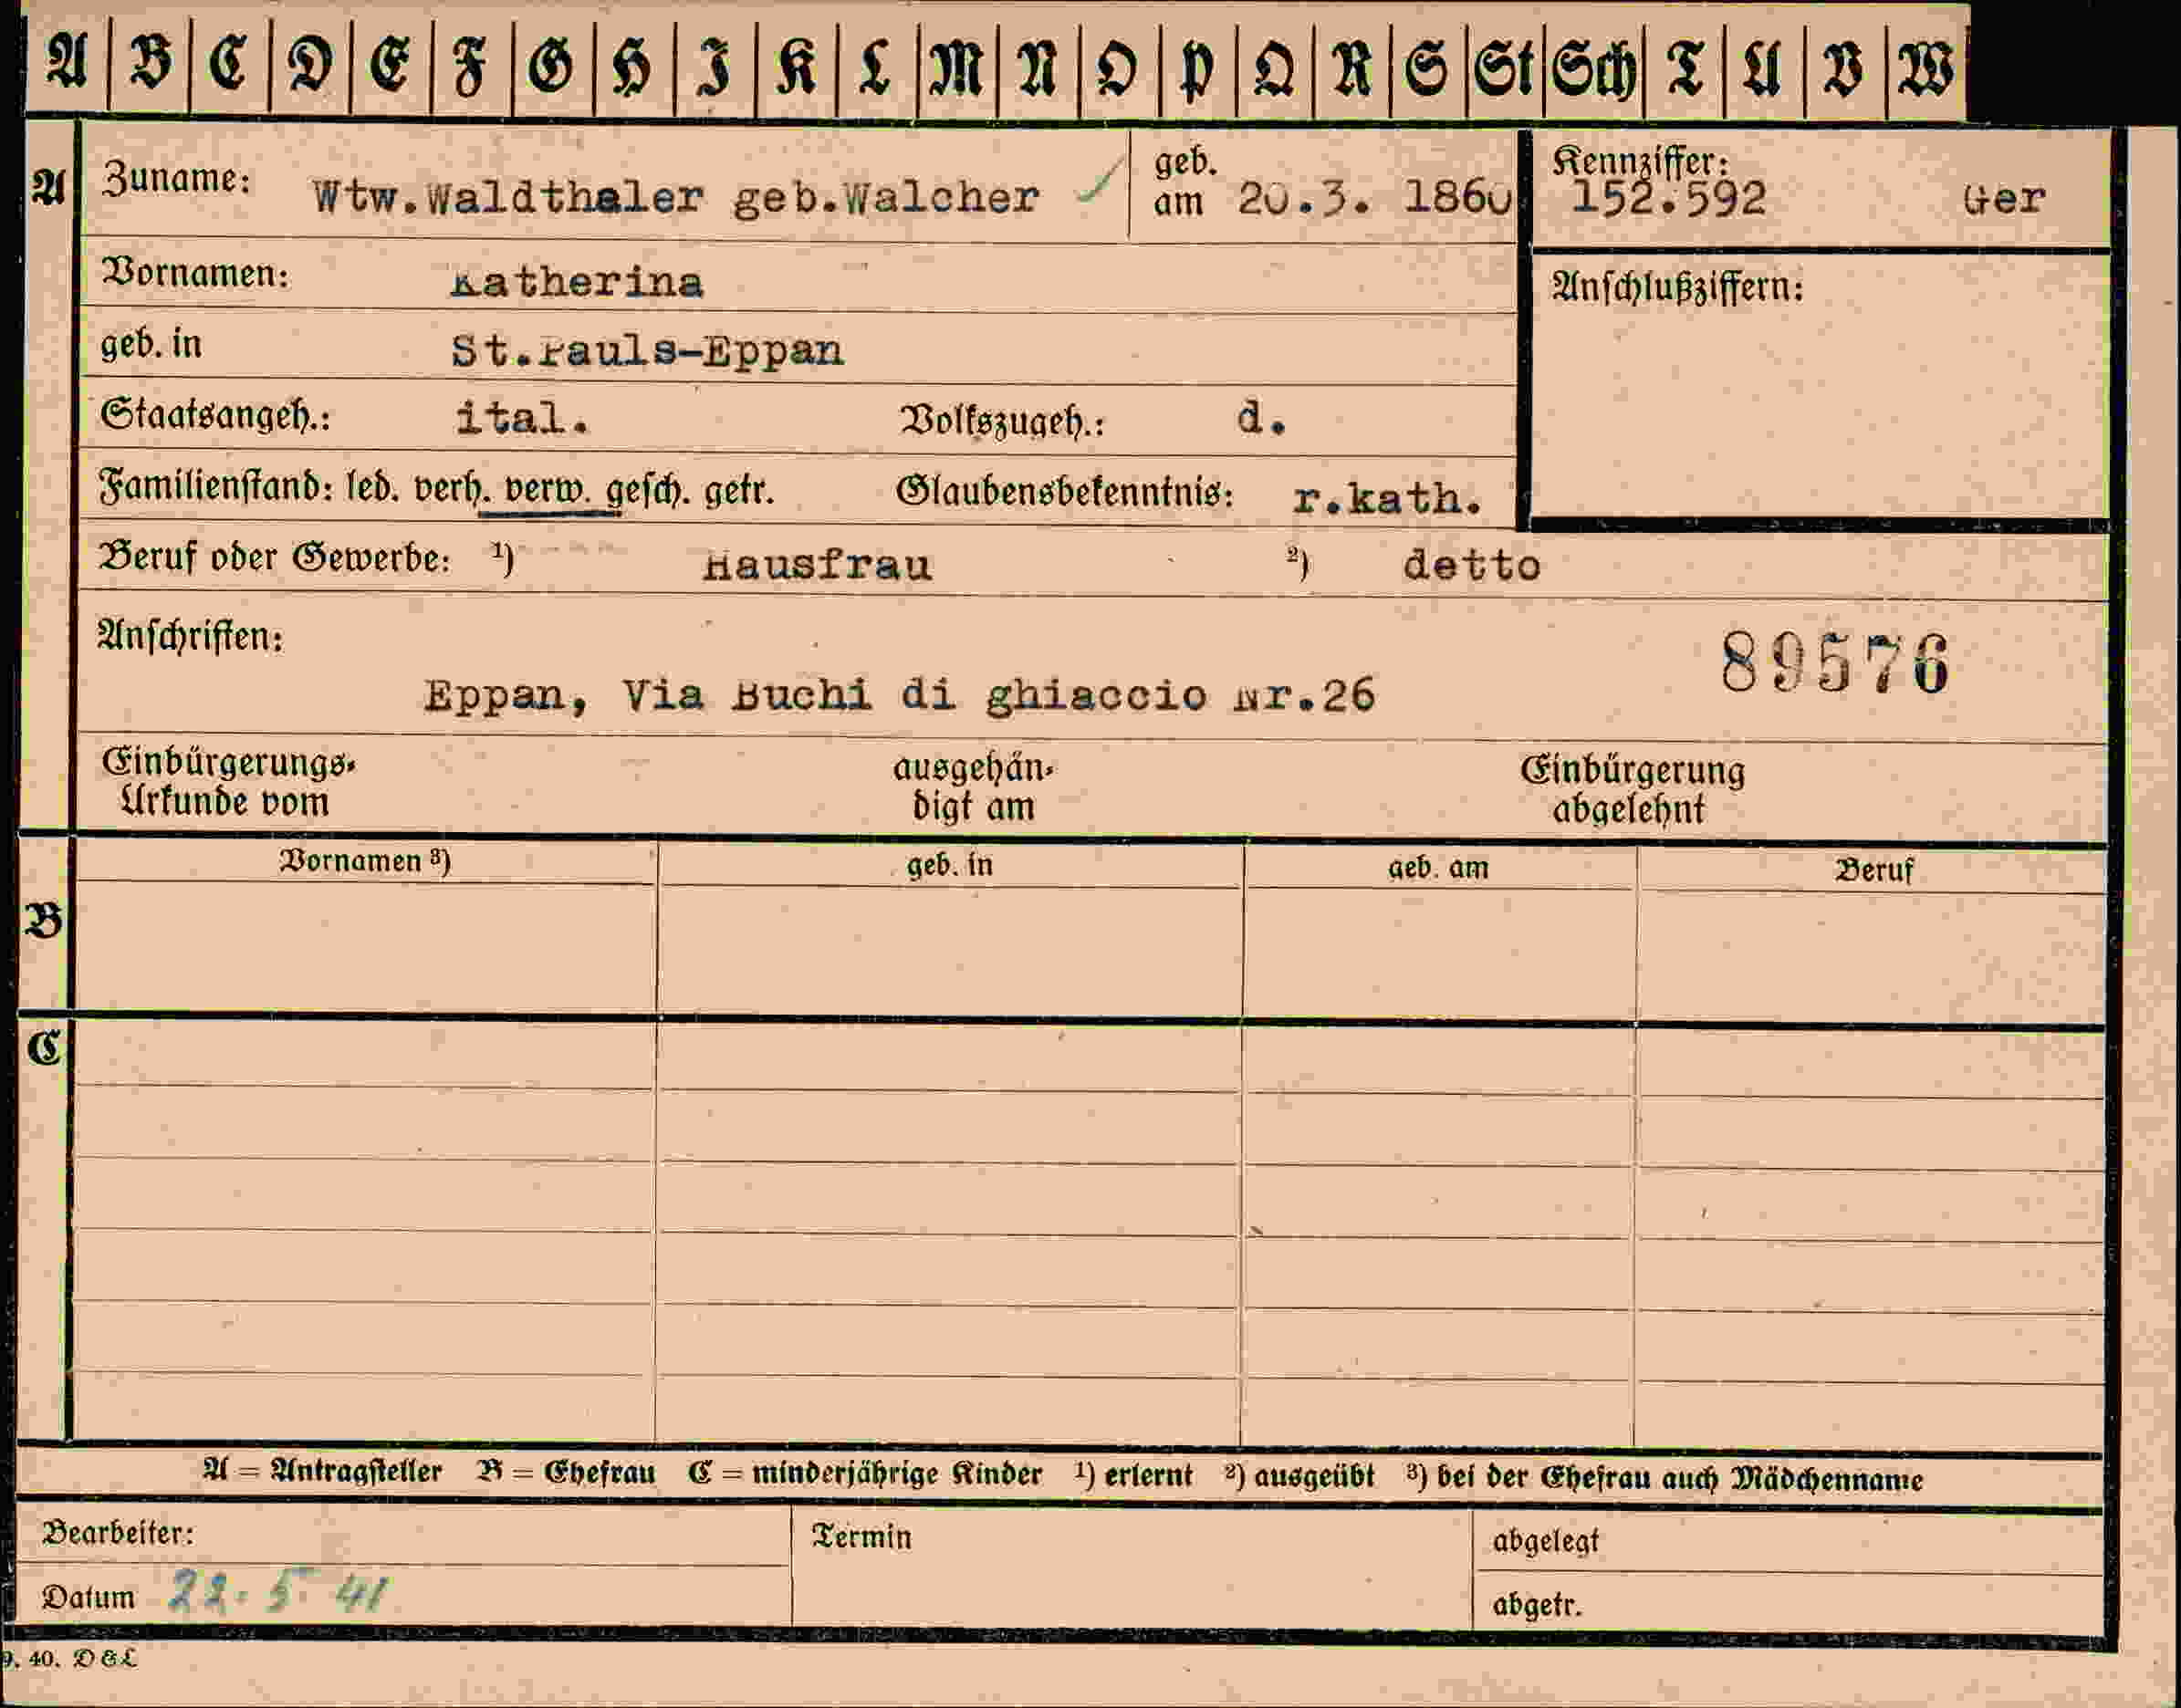 A B C D E F G H I K L M N O P Q R S St Sch T U V W
A Zuname: Wtw.Waldthaler geb.Walcher geb. am 20.3. 1860 Kennziffer: 152.592 Ger
Vornamen: Katherina Anschlußziffern:
geb. in St.Pauls-Eppan
Staatsangeh.: ital. Volkszugeh.: d.
Familienstand: led. verh. verw. gesch. getr. Glaubensbekenntnis: r.kath.
Beruf oder Gewerbe: 1) Hausfrau 2) detto
Anschriften: 89576
Eppan, Via Buchi di ghiaccio Nr.26
Einbürgerungs- ausgehän- Einbürgerung
Urkunde vom digt am abgelehnt
Vornamen 3) geb. in geb. am Beruf
B
C
A = Antragsteller B = Ehefrau C = minderjährige Kinder 1) erlernt 2) ausgeübt 3) bei der Ehefrau auch Mädchenname
Bearbeiter: Termin abgelegt
Datum 22. 5 41 abgetr.
9. 40. D & L